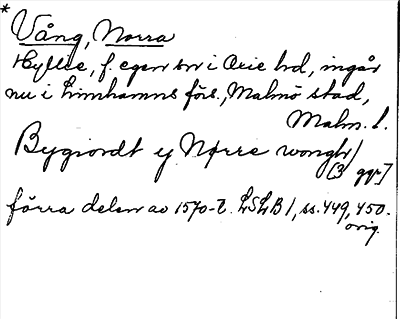 * Vång, Norra
Hyllie, f. egen sn i Oxie hd, ingår
nu i Limhamns förs., Malmö stad,
Malm. l.
Bygiordt y Nørre wongh/
[3 ggr]
förra delen av 1570-t. LSLB 1, ss. 449, 450.
orig.